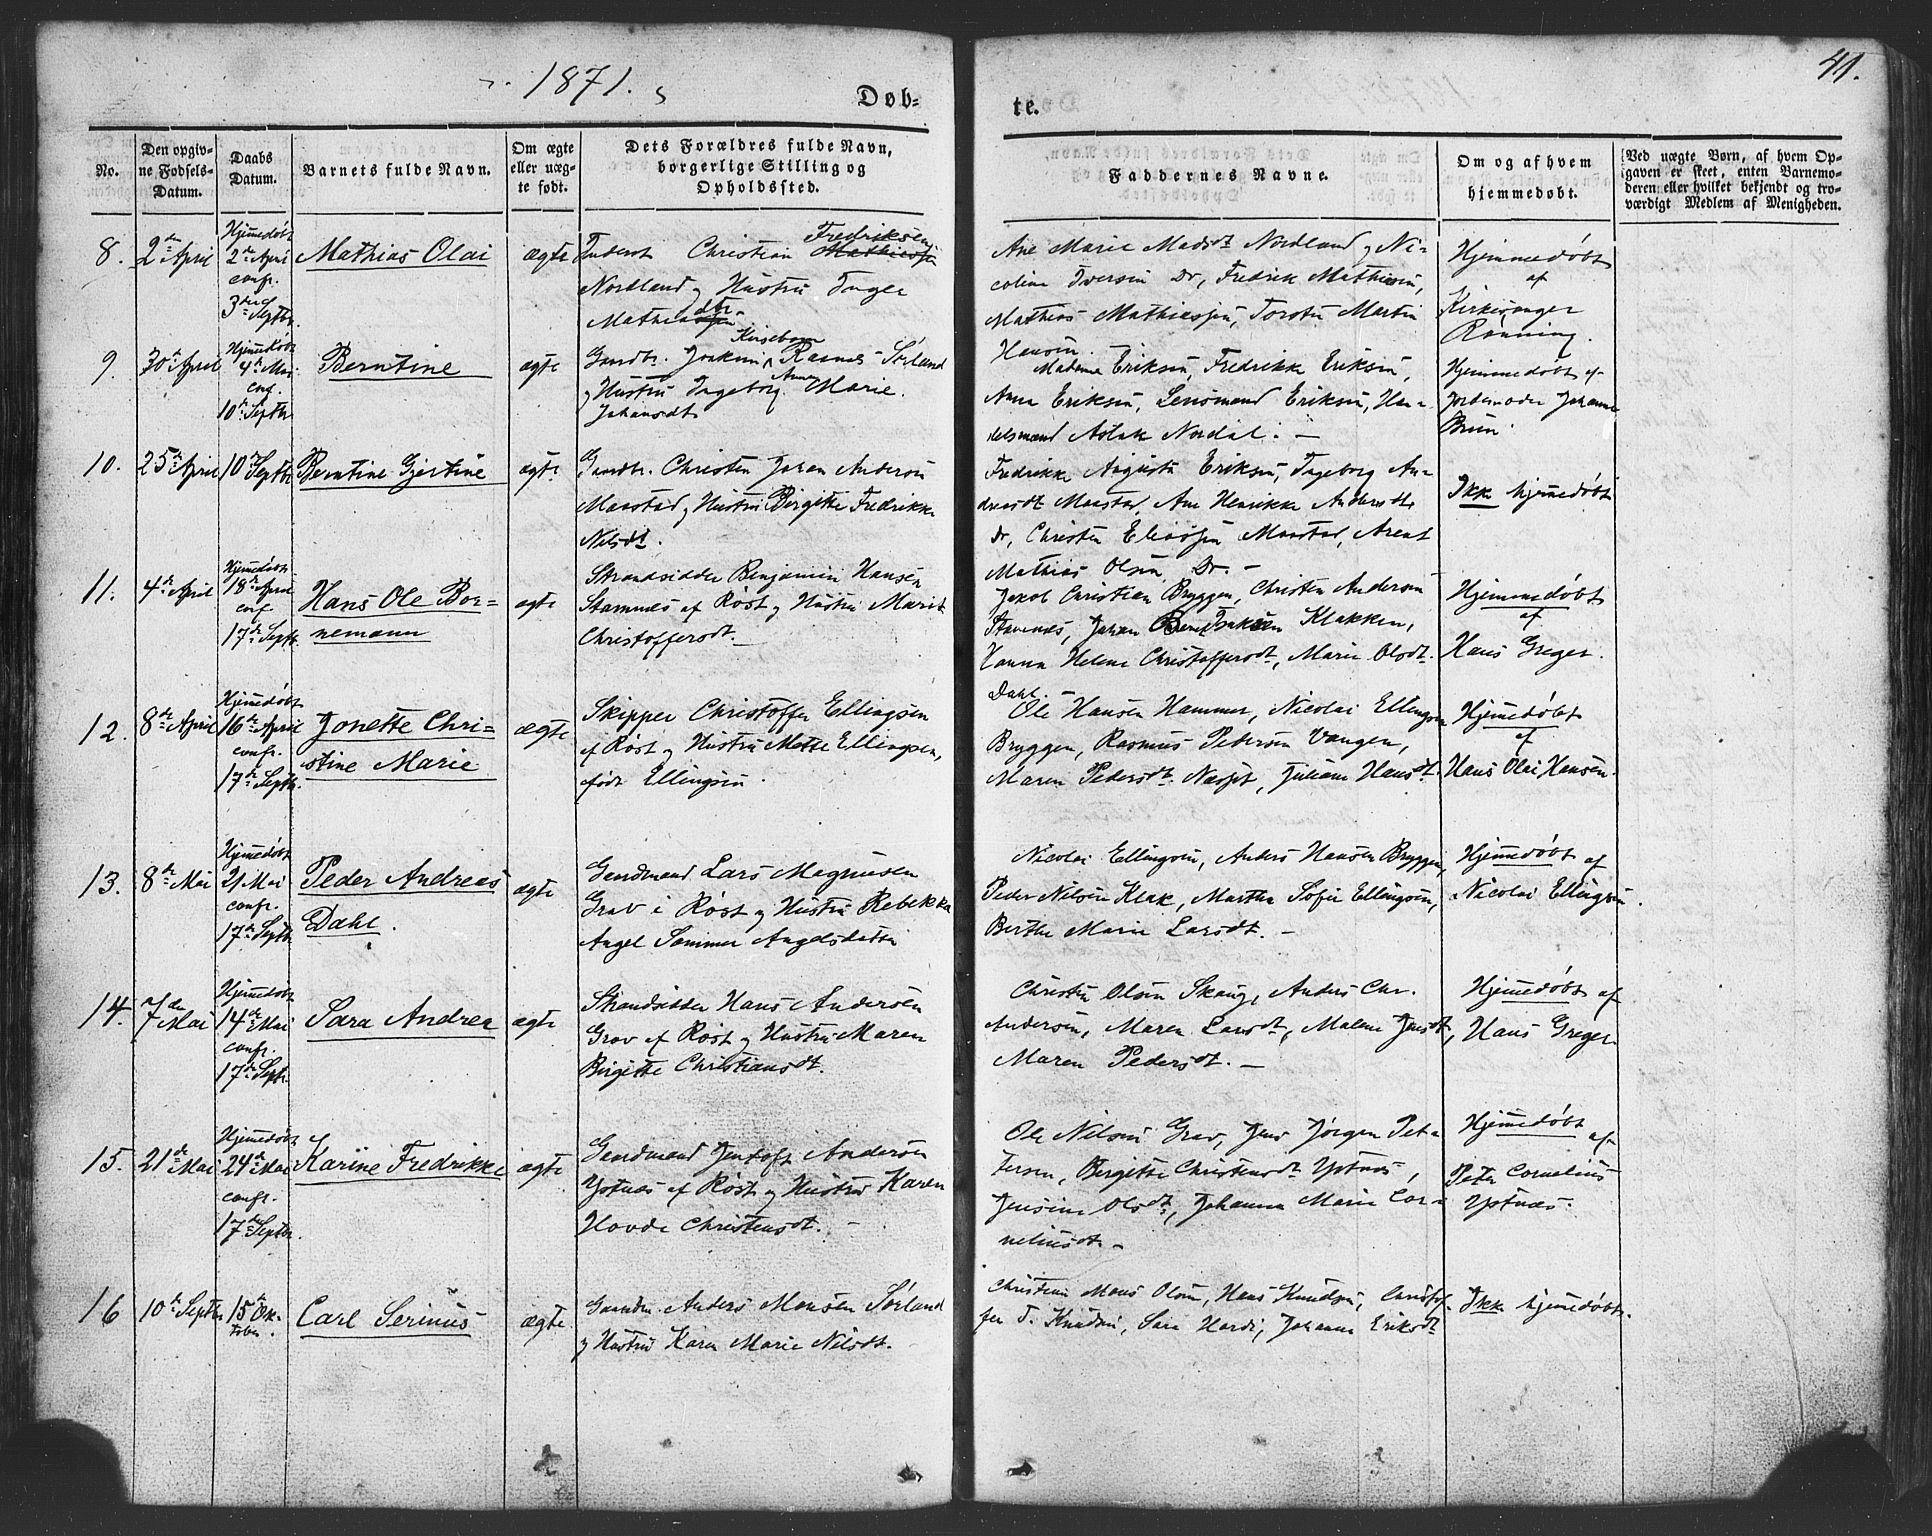 1871.
41.
Døb-
te.
No.
Den opgiv-
ne Fødsels-
Datum.
Daabs
Datum.
Barnets fulde Navn.
Om ægte
eller uæg-
te født.
Dets Forældres fulde Navn,
borgerlige Stilling og
Opholdssted.
Faddernes Navne.
Om og af hvem
hjemmedøbt.
Ved uægte Børn, af hvem Op-
gaven er skeet, enten Barnemo-
deren eller hvilket bekjendt og tro-
værdigt Medlem af Menigheden.
8.
2de April
Hjemedøbt
2de April
conf.
3die Septbr.
Mathias Olai
ægte
Christian Fredriksen
Nordland og Hustru Inger
Mathiasdtr.
Ane Marie Madsdt Nordland og Ni-
coline Iversen Do, Fredrik Mathisen,
Mathias Mathiassen, Torster Martin
Hansen.
Hjemmedøbt
af
Kirkesanger
Rønning.
9.
30te April
Hjemedøbt
4de Mai
conf.
10de Septbr.
Berntine
ægte
Gaardbr. Joakim Kirseboom Rasmus Sørland
og Hustru Ingeborg Anna Marie
Johansdt
Madame Eriksen, Fredrikke Eriksen,
Anna Eriksen, Lensmand Eriksen, Han-
delsmand Aslak Nordal. —
Hjemmedøbt af
Jordemoder Johanna
Bruun.
10.
25de April
10de Septbr
Berntine Gjertine
ægte
Gaardbr. Christen Johan Andersen
Maastad og Hustru Birgitte Fredrikke
Nilsdt.
Fredrikke Augusta Eriksen, Ingeborg An-
dreasdt Maastad, Ane Henrikke Andersdt
Do, Christen Eliassen Maastad, Arent
Mathias Olsen Do. —
Ikke hjemedøbt
11.
4de April
Hjemedøbt
18de April
conf.
17de Septbr.
Hans Ole Bor-
nemann
ægte
Strandsidder Benjamin Hansen
Stamnes af Røst og Hustru Marit
Christoffersdt.
Jakob Christian Bryggen, Christen Andersen
Stavenes, Johan Klakken,
Hanna Helene Christoffersdt, Marie Olsdt.
Dahl. —
Hjemmedøbt
af
Hans Greger.
12.
8de April
Hjemedøbt
16de April
conf.
17de Septbr.
Jonette Chri-
stine Marie
ægte
Skipper Christoffer Ellingsen
af Røst og Hustru Mette Ellingsen,
født Ellingsen.
Ole Hansen Hammer, Nicolai Ellingsen
Bryggen, Rasmus Pedersen Vangen,
Maren Pedersdt. Næsset, Juliane Hansdt.
Hjemedøbt
af
Hans Olai Hansen.
13.
8de Mai
Hjemedøbt
21 Mai
conf.
17de Septbr
Peder Andreas
Dahl.
ægte
Gaardmand Lars Magnusen
Grav i Røst og Hustru Rebekka
Angel Sommer Angelsdatter
Nicolai Ellingsen, Anders Hansen Bryggen,
Peder Nilsen Klak, Martha Sofie Ellingsen,
Berthe Marie Larsdt. —
Hjemedøbt af
Nicolai Ellingsen.
14.
7de Mai
Hjemedøbt
14de Mai
conf.
17de Septbr.
Sara Andrea
ægte
Strandsidder Hans Andersen
Grav af Røst og Hustru Maren
Birgitte Christiansdt.
Christen Olsen Skaug, Anders Chr.
Andersen, Maren Larsdt, Malene Jensdt,
Maren Pedersdt. —
Hjemedøbt af
Hans Greger.
15.
21de Mai
Hjemedøbt
24de Mai
conf.
17de Septbr.
Karine Fredrikke
ægte
Gaardmand Jentoft Andersen
Ystnes af Røst og Hustru Karen
Hovda Christensdt. —
Ole Nilsen Grav, Jens Jørgen Pet-
tersen, Birgitte Christensdt Ystnæs,
Jensine Olsdt, Johanna Marie Cor-
neliusdt. —
Hjemedøbt
af
Peter Cornelius
Ystnæs.
16
10de Septbr
15de Ok-
tober.
Carl Serinus
ægte
Gaardm. Anders Monsen Sørland
og Hustru Karen Marie Nilsdt.
Christian Mons Olsen, Hans Knudsen, Christof-
fer T. Knudsen, Sara Hardi, Johanna Eriksdt
Ikke hjemedøbt.